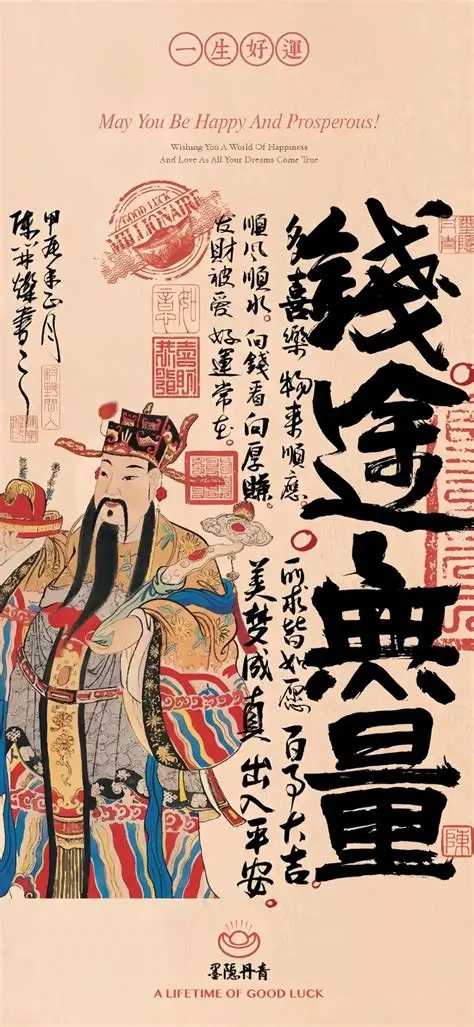 一生好運
May You Be Happy And Prosperous!
Wishing You A World Of Happiness
And Love As All Your Dreams Come True
錢途無量
多喜樂 物来順應。
順风順水。向錢看向厚赚。
发財被爱 好運常在。
所求皆如愿 百事大吉。
美梦成真 出入平安。
甲辰年正月
GOOD LUCK
MILLIONAIRE
如意
陳
墨隱丹青
A LIFETIME OF GOOD LUCK